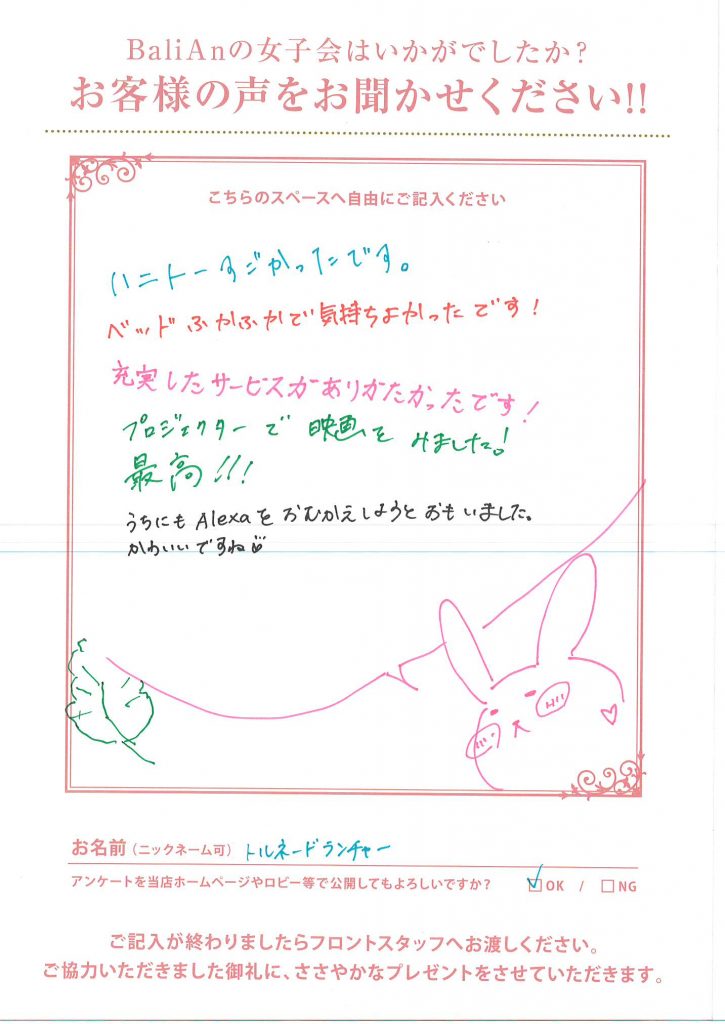 BaliAnの女子会はいかがでしたか?
お客様の声をお聞かせください!!
こちらのスペースへ自由にご記入ください
ハニトーすごかったです。
ベッドふかふかで気持ちよかったです!
充実したサービスがありがたかったです!
プロジェクターで映画をみました!
最高!!!
うちにもAlexaをおむかえしようとおもいました。
かわいいですね
お名前(ニックネーム可) トルネードランチャー
アンケートを当店ホームページやロビー等で公開してもよろしいですか? ☑OK / □NG
ご記入が終わりましたらフロントスタッフへお渡しください。
ご協力いただきました御礼に、ささやかなプレゼントをさせていただきます。